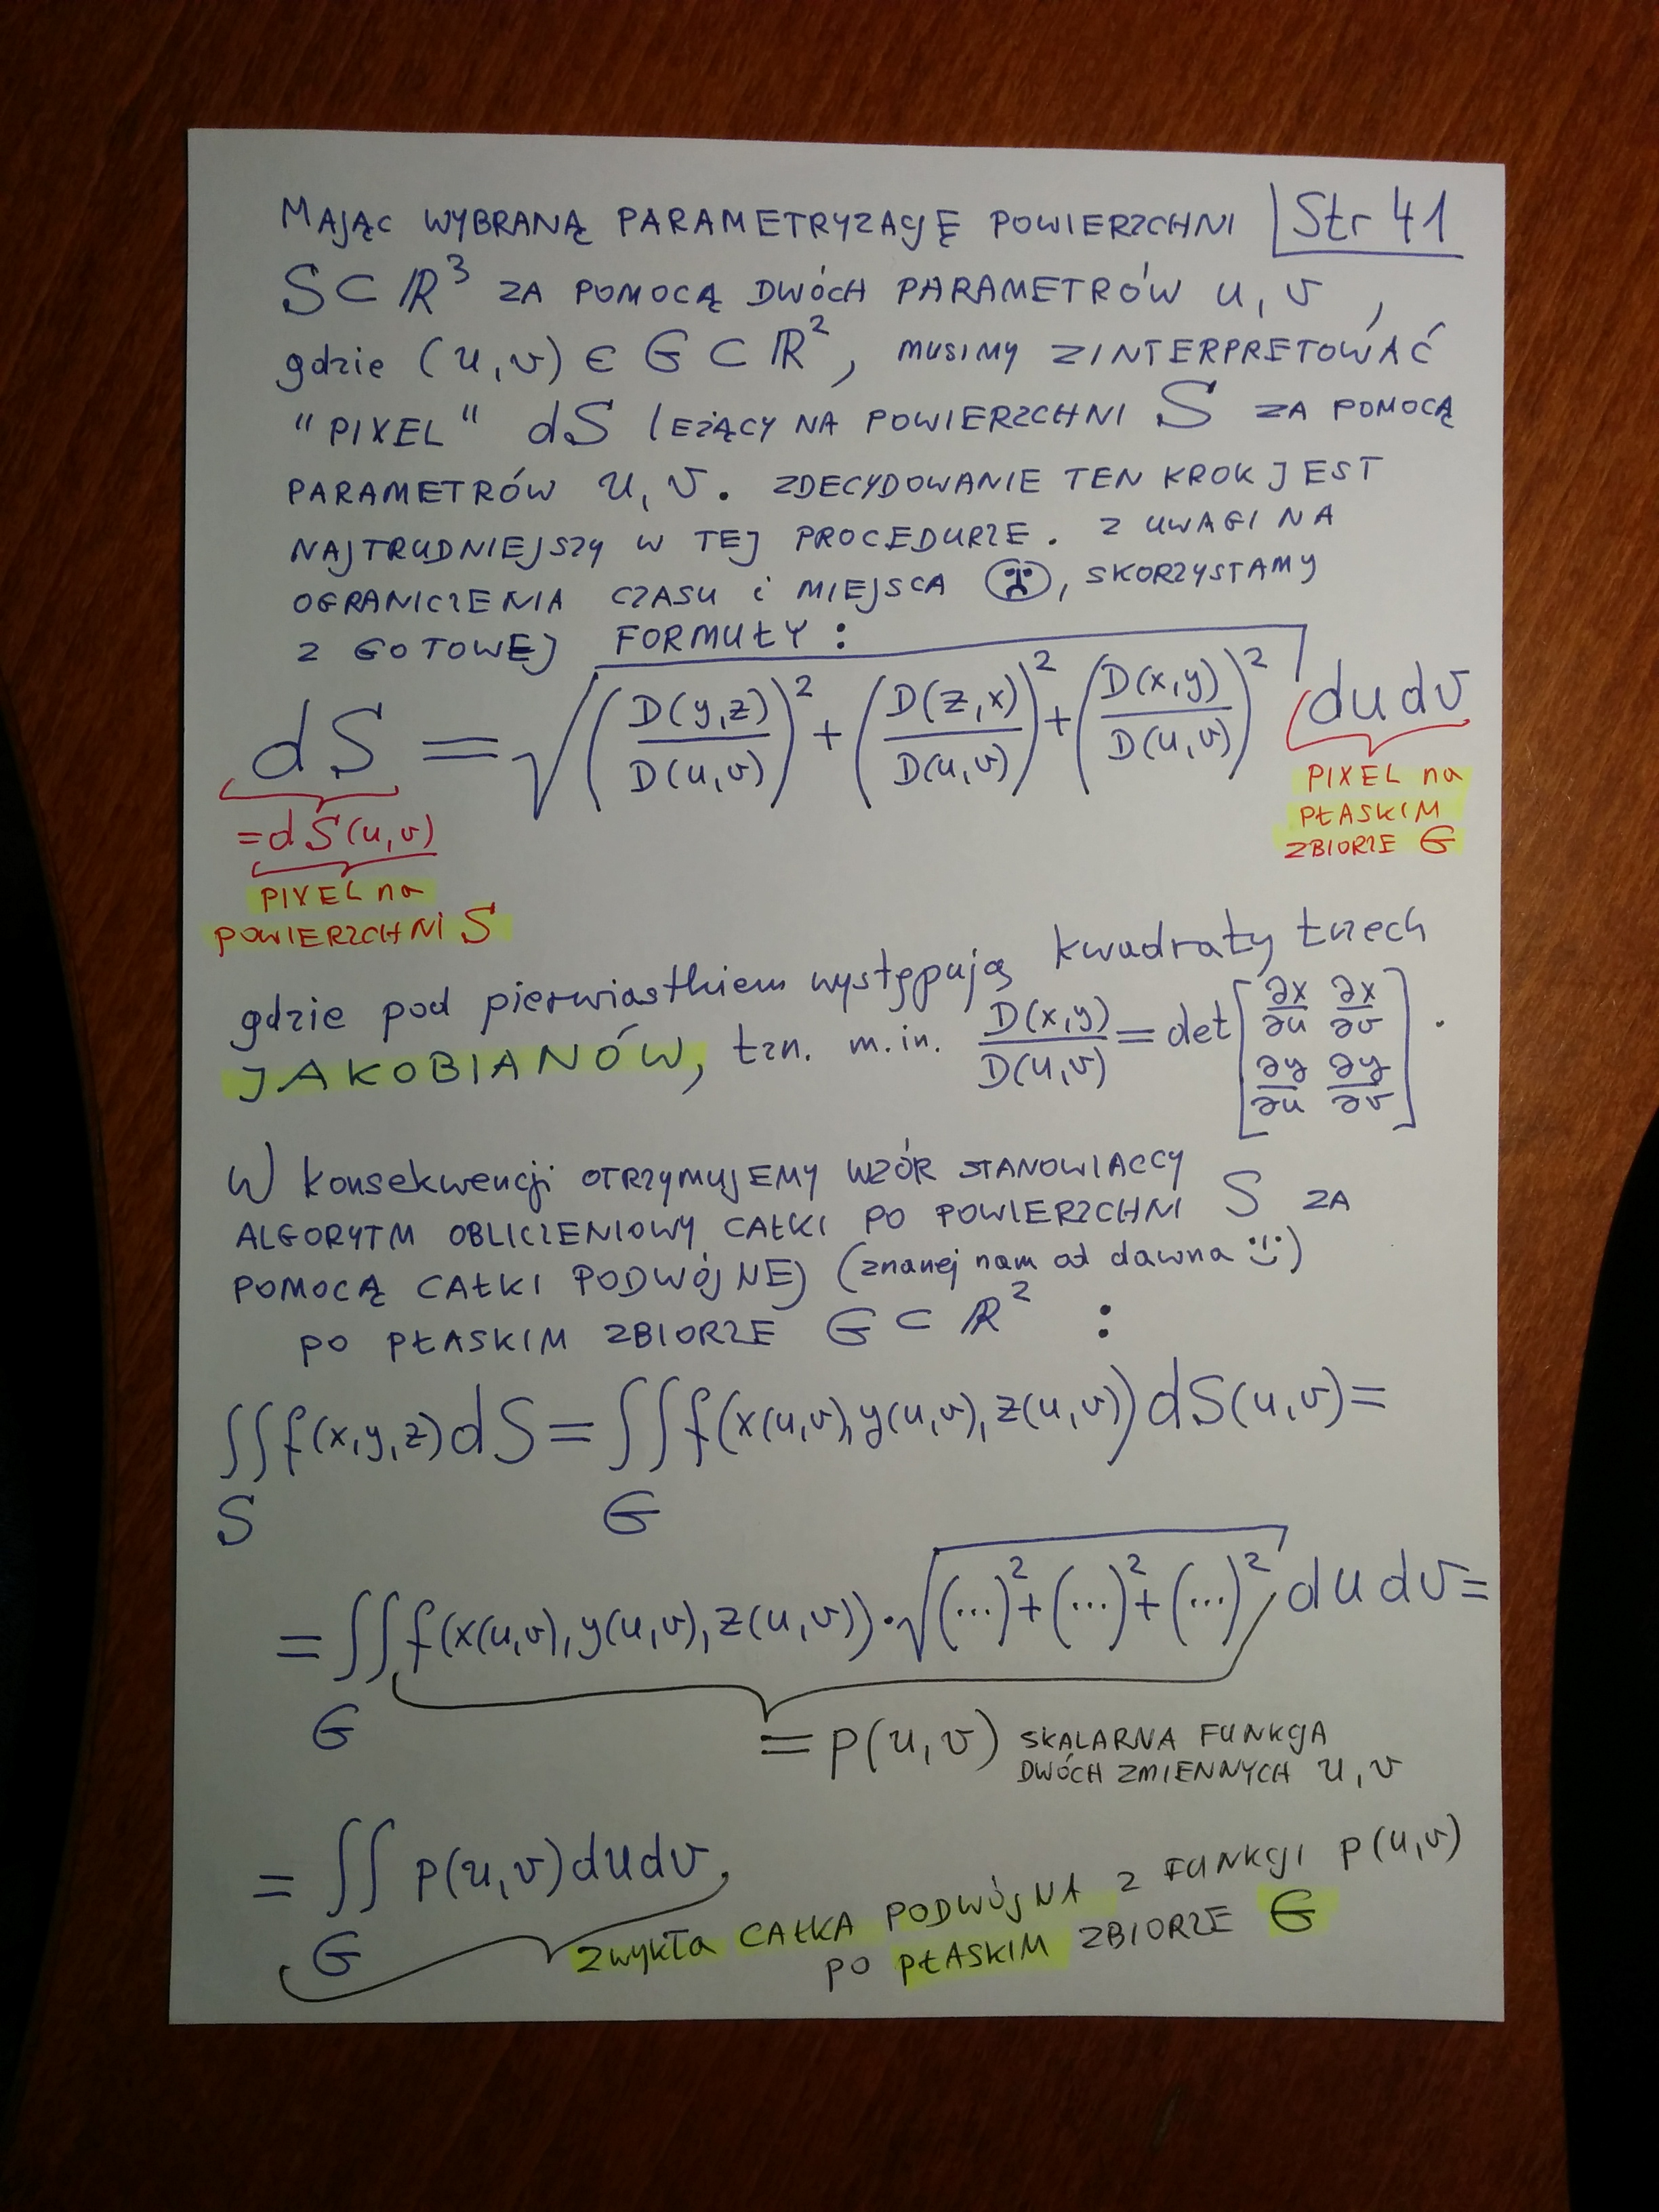 MAJĄC WYBRANĄ PARAMETRYZACJĘ POWIERZCHNI Str 41
S ⊂ ℝ³ ZA POMOCĄ DWÓCH PARAMETRÓW u, v,
gdzie (u,v) ∈ G ⊂ ℝ², MUSIMY ZINTERPRETOWAĆ
"PIXEL" dS LEŻĄCY NA POWIERZCHNI S ZA POMOCĄ
PARAMETRÓW u, v. ZDECYDOWANIE TEN KROK JEST
NAJTRUDNIEJSZY W TEJ PROCEDURZE. Z UWAGI NA
OGRANICZENIA CZASU i MIEJSCA ☹, SKORZYSTAMY
Z GOTOWEJ FORMUŁY:
dS = √((D(y,z)/D(u,v))² + (D(z,x)/D(u,v))² + (D(x,y)/D(u,v))²) du dv
= dS(u,v)
PIXEL na
POWIERZCHNI S
PIXEL na
PŁASKIM
ZBIORZE G
gdzie pod pierwiastkiem występują kwadraty trzech
JAKOBIANÓW, tzn. m.in. D(x,y)/D(u,v) = det [∂x/∂u ∂x/∂v ; ∂y/∂u ∂y/∂v].
W konsekwencji OTRZYMUJEMY WZÓR STANOWIACCY
ALGORYTM OBLICZENIOWY CAŁKI PO POWIERZCHNI S ZA
POMOCĄ CAŁKI PODWÓJNEJ (znanej nam od dawna ☺)
PO PŁASKIM ZBIORZE G ⊂ ℝ² :
∬ f(x,y,z) dS = ∬ f(x(u,v), y(u,v), z(u,v)) dS(u,v) =
S G
= ∬ f(x(u,v), y(u,v), z(u,v)) · √((...)² + (...)² + (...)²) du dv =
G
= p(u,v) SKALARNA FUNKCJA
DWÓCH ZMIENNYCH u, v
= ∬ p(u,v) du dv,
G
ZWYKŁA CAŁKA PODWÓJNA Z FUNKCJI p(u,v)
PO PŁASKIM ZBIORZE G